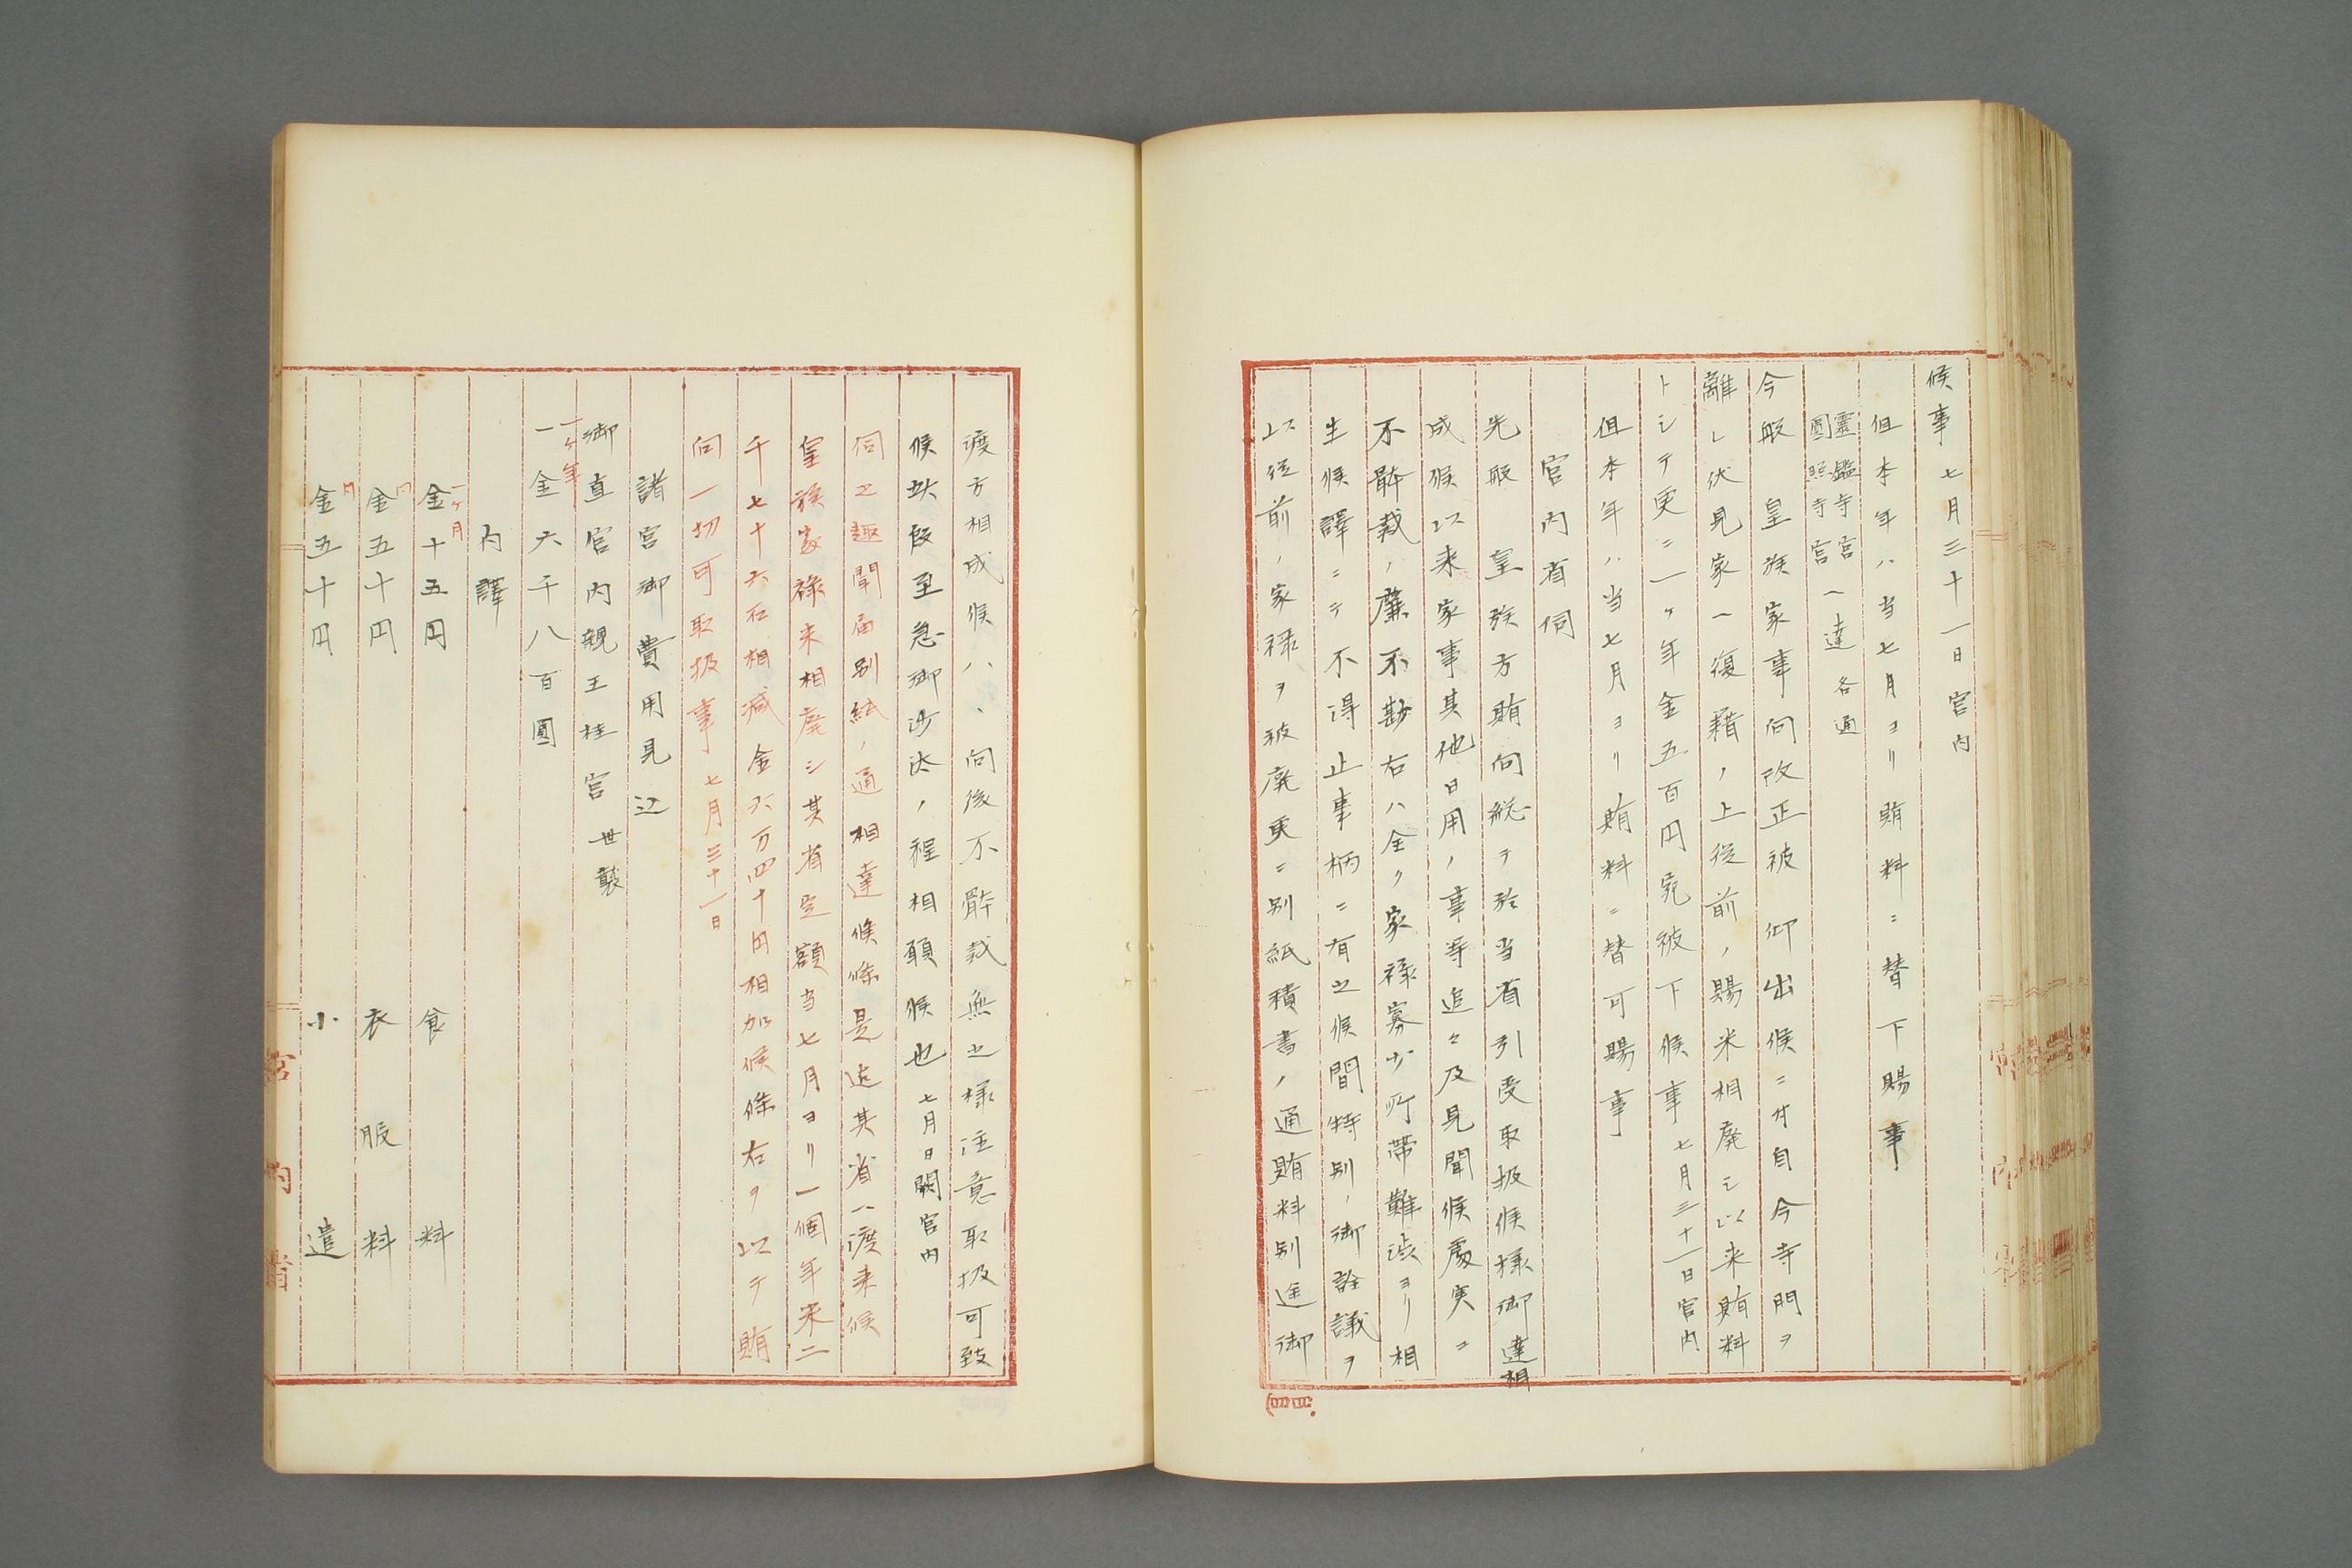 候事 七月三十一日宮内
但本年ハ当七月ヨリ賄料ニ替下賜事
靈鑑寺宮
圓照寺宮 ヘ達 各通
今般 皇族家事向改正被 仰出候ニ付自今寺門ヲ
離レ伏見家ヘ復籍ノ上従前ノ賜米相廃シ以来賄料
トシテ更ニ一ヶ年金五百円宛被下候事 七月三十一日宮内
但本年ハ当七月ヨリ賄料ニ替可賜事
宮内省伺
先般 皇族方賄向総テ於当省引受取扱候様御達相
成候以来家事其他日用ノ事等追々及見聞候處実ニ
不體裁ノ廉不尠右ハ全ク家禄寡少所帯難渋ヨリ相
生候譯ニテ不得止事柄ニ有之候間特別ノ御詮議ヲ
以従前ノ家禄ヲ被廃更ニ別紙積書ノ通賄料別途御
渡方相成候ハヽ向後不體裁無之様注意取扱可致
候此段至急御沙汰ノ程相願候也 七月日闕宮内
伺之趣聞届別紙ノ通相達候條是迄其省ヘ渡来候
皇族家禄米相廃シ其省定額当七月ヨリ一個年米二
千七十六石相減金六万四十円相加候條右ヲ以テ賄
向一切可取扱事 七月三十一日
諸宮御費用見込
御直宮内親王桂宮世襲
一ヶ年
一金六千八百圓
内譯
一ヶ月
金十五円 食料
月
金五十円 衣服料
月
金五十円 小遣
宮内省